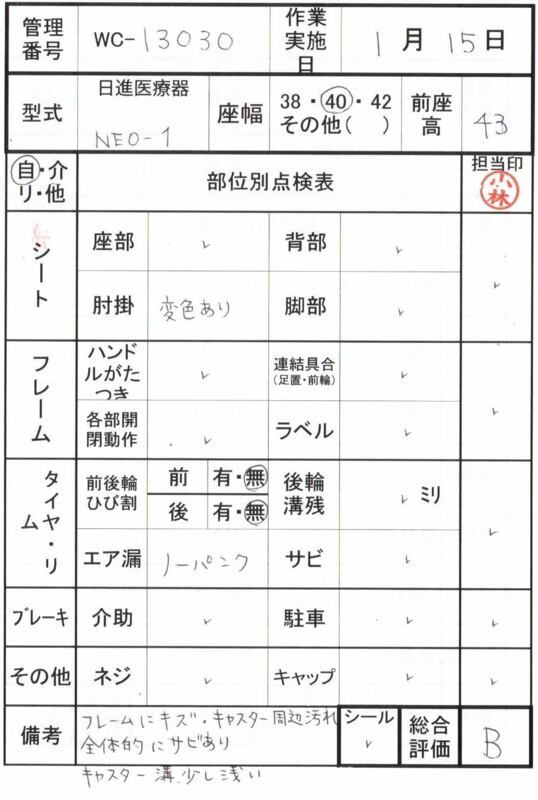 管理番号 WC-13030 作業実施日 1月15日
型式 日進医療器 NEO-1 座幅 38・40・42 その他( ) 前座高 43
自・介 リ・他 部位別点検表 担当印 小林
シート 座部 ✓ 背部 ✓ ✓
肘掛 変色あり 脚部 ✓
フレーム ハンドルがたつき ✓ 連結具合(足置・前輪) ✓ ✓
各部開閉動作 ✓ ラベル ✓
タイヤ・リム 前後輪ひび割 前 有・無 後輪溝残 ✓ ミリ ✓
後 有・無
エア漏 ノーパンク サビ ✓
ブレーキ 介助 ✓ 駐車 ✓ ✓
その他 ネジ ✓ キャップ ✓ ✓
備考 フレームにキズ・キャスター周辺汚れ シール ✓ 総合評価 B
全体的にサビあり
キャスター溝少し浅い